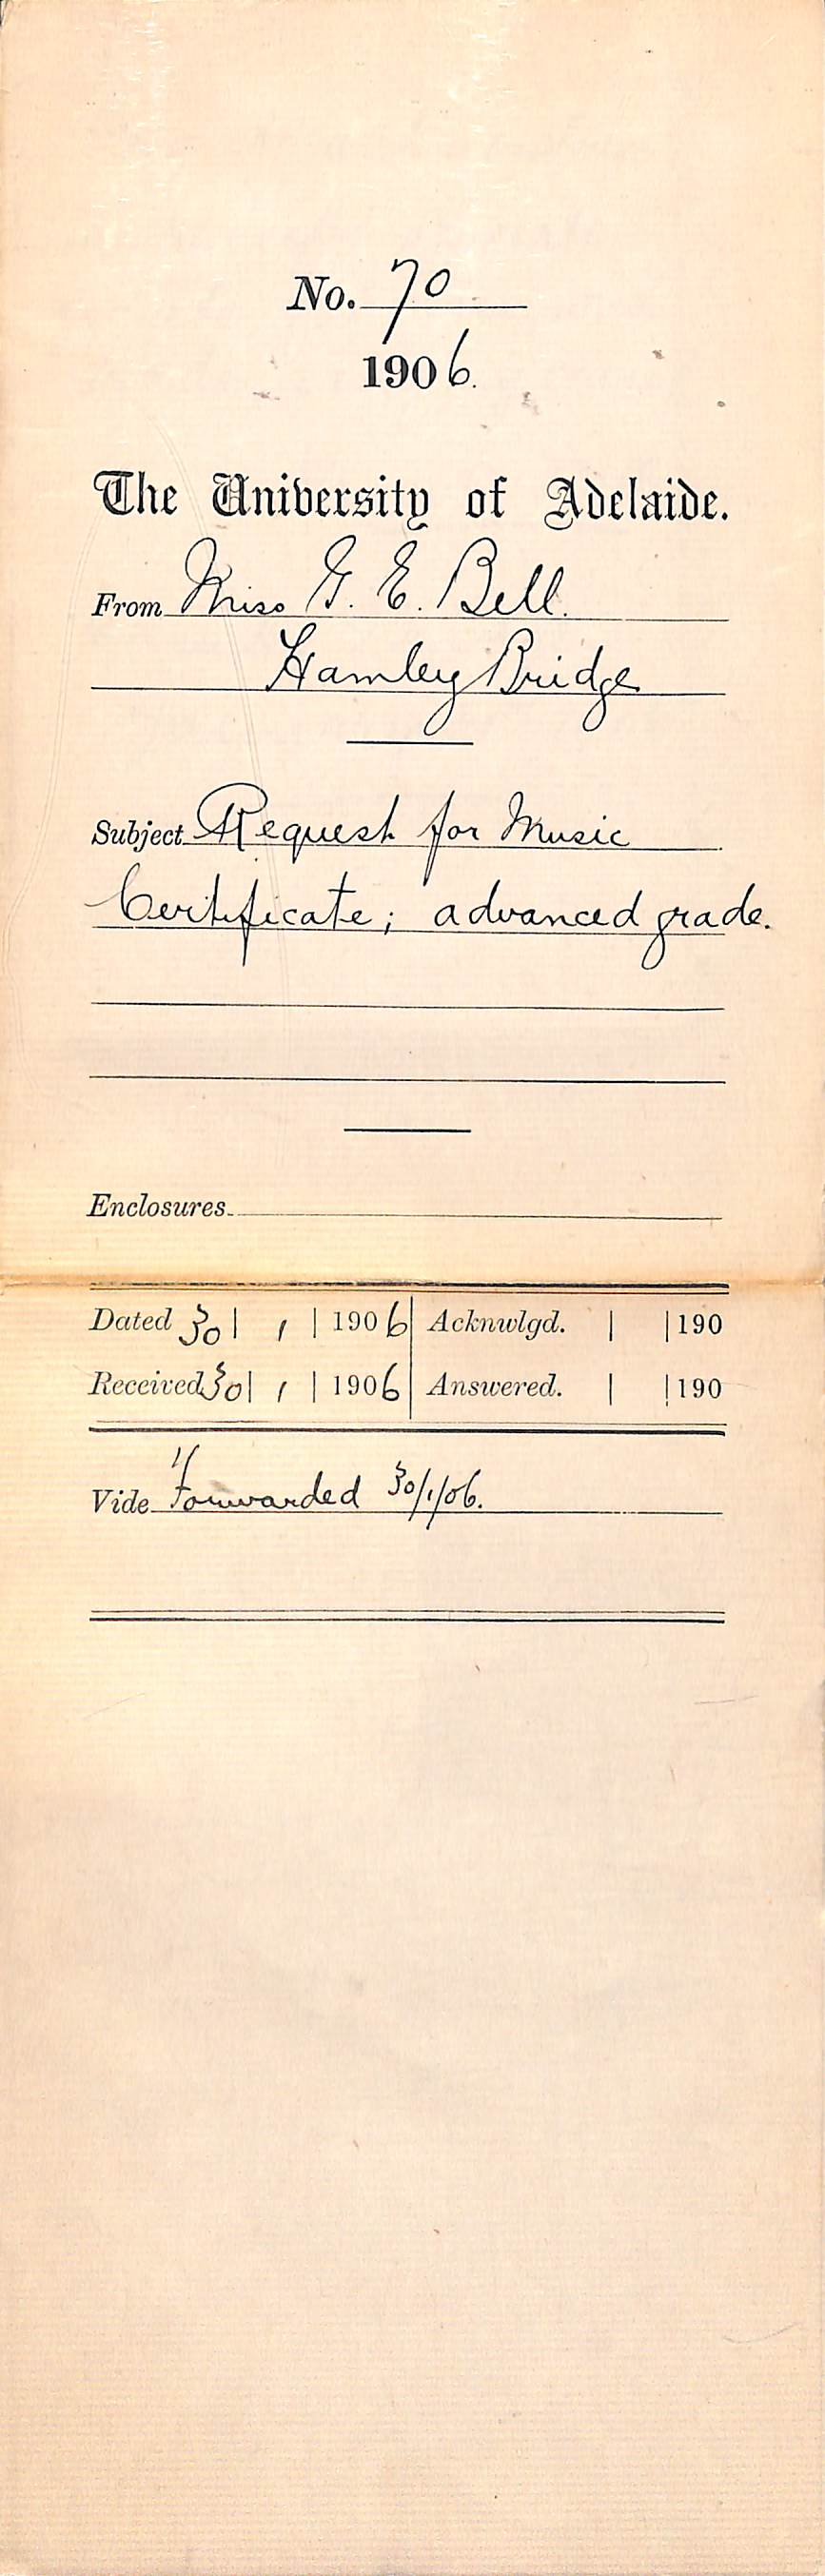 No. 70
1906.
The University of Adelaide.
From Miss G. E. Bell.
Hamley Bridge
Subject Request for Music
Certificate; advanced grade.
Enclosures
Dated 30 | 1 | 1906 Acknwlgd. | | 190
Received 30 | 1 | 1906 Answered. | | 190
Vide Forwarded 30/1/06.